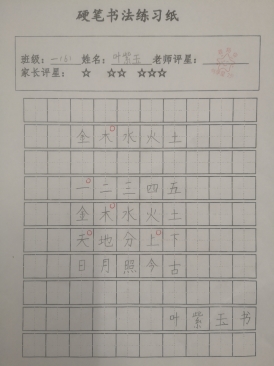 硬笔书法练习纸
班级：一(5) 姓名：叶紫玉 老师评星：
家长评星：☆ ☆☆ ☆☆☆
金木水火土
一二三四五
金木水火土
天地分上下
日月照今古
叶紫玉书